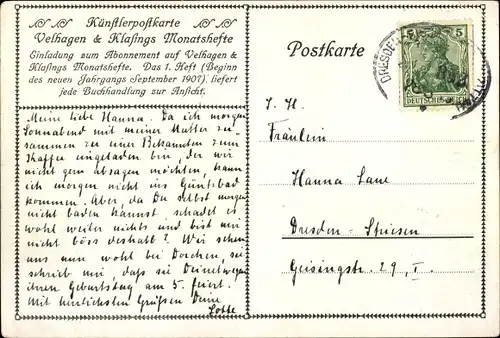 Künstlerpostkarte
Velhagen & Klasings Monatshefte
Einladung zum Abonnement auf Velhagen &
Klasings Monatshefte. Das 1. Heft (Beginn
des neuen Jahrgangs September 1907), liefert
jede Buchhandlung zur Ansicht.
Meine liebe Hanna. Da ich morgen
Sonnabend mit meiner Mutter zu-
sammen zu einer Bekannten zum
Kaffee eingeladen bin, der wir
nicht gern absagen möchten, kann
ich morgen nicht ins Güntzbad
kommen. Aber, da Du selbst morgen
nicht baden kannst, schadet es
wohl weiter nichts und bist mir
nicht böse deshalb? Wir sehen
uns nun wohl bei Dorchen, sie
schrieb mir, dass sie Deinetwegen
ihren Geburtstag am 5. feiert.
Mit herzlichsten Grüßen Deine
Lotte
Postkarte
DRESDEN
5 5
DEUTSCHES REICH
Fräulein
Hanna
Dresden-Striesen
Geisingstr. 29, I.